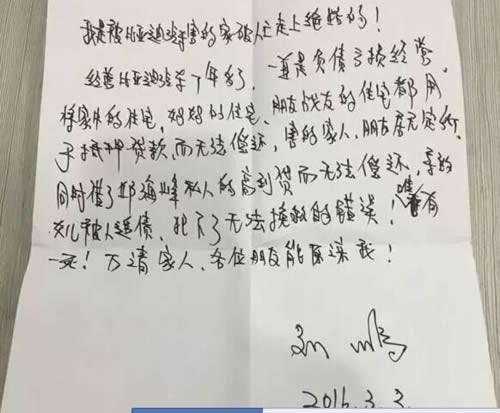 我是被比亚迪迫害的家破人亡走上绝路的！
经营比亚迪汽车7年多，一直是负债亏损经营
将家中的住宅，妈妈的住宅、朋友战友的住宅都用
于抵押贷款，而无法偿还，害的家人、朋友居无定所，
同时借了邢海峰私人的高利贷而无法偿还，导致
女儿被人逼债，犯下了无法挽救的错误！唯有
一死！万请家人、各位朋友能原谅我！
2016.3.3